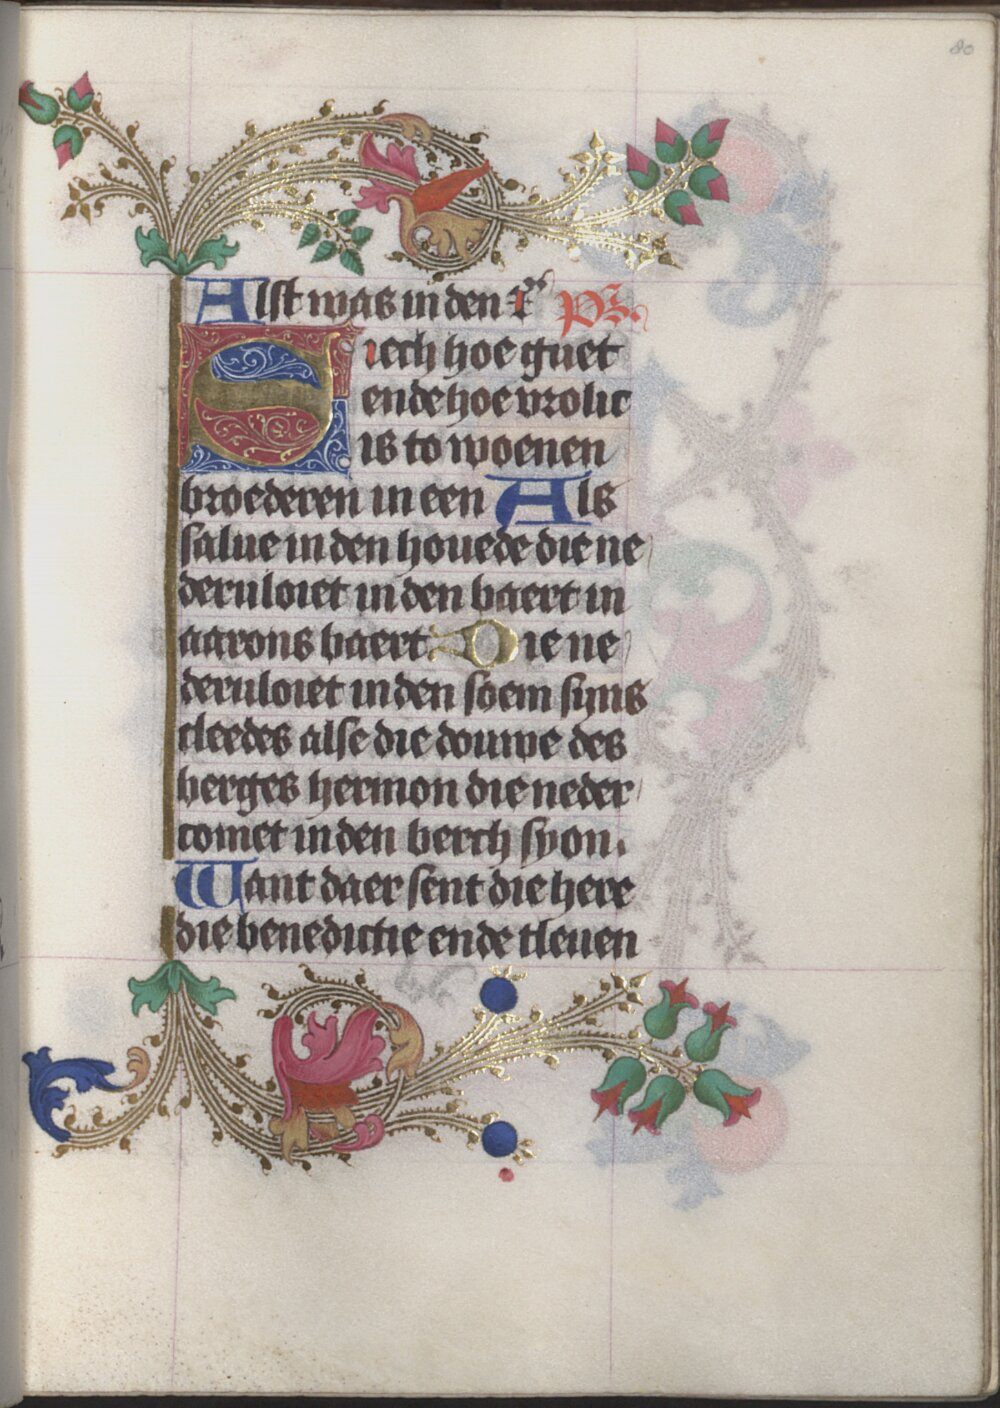 80
Alst was in den
Siech hoe guet
ende hoe vrolic
is to woenen
broederen in een Als
salue in den houede die ne
deruloiet in den baert in
aarons baert Die ne
deruloiet in den soem syns
cleedes alse die douwe des
berges hermon die neder
comet in den berch syon.
Want daer sent die here
die benedictie ende tleuen